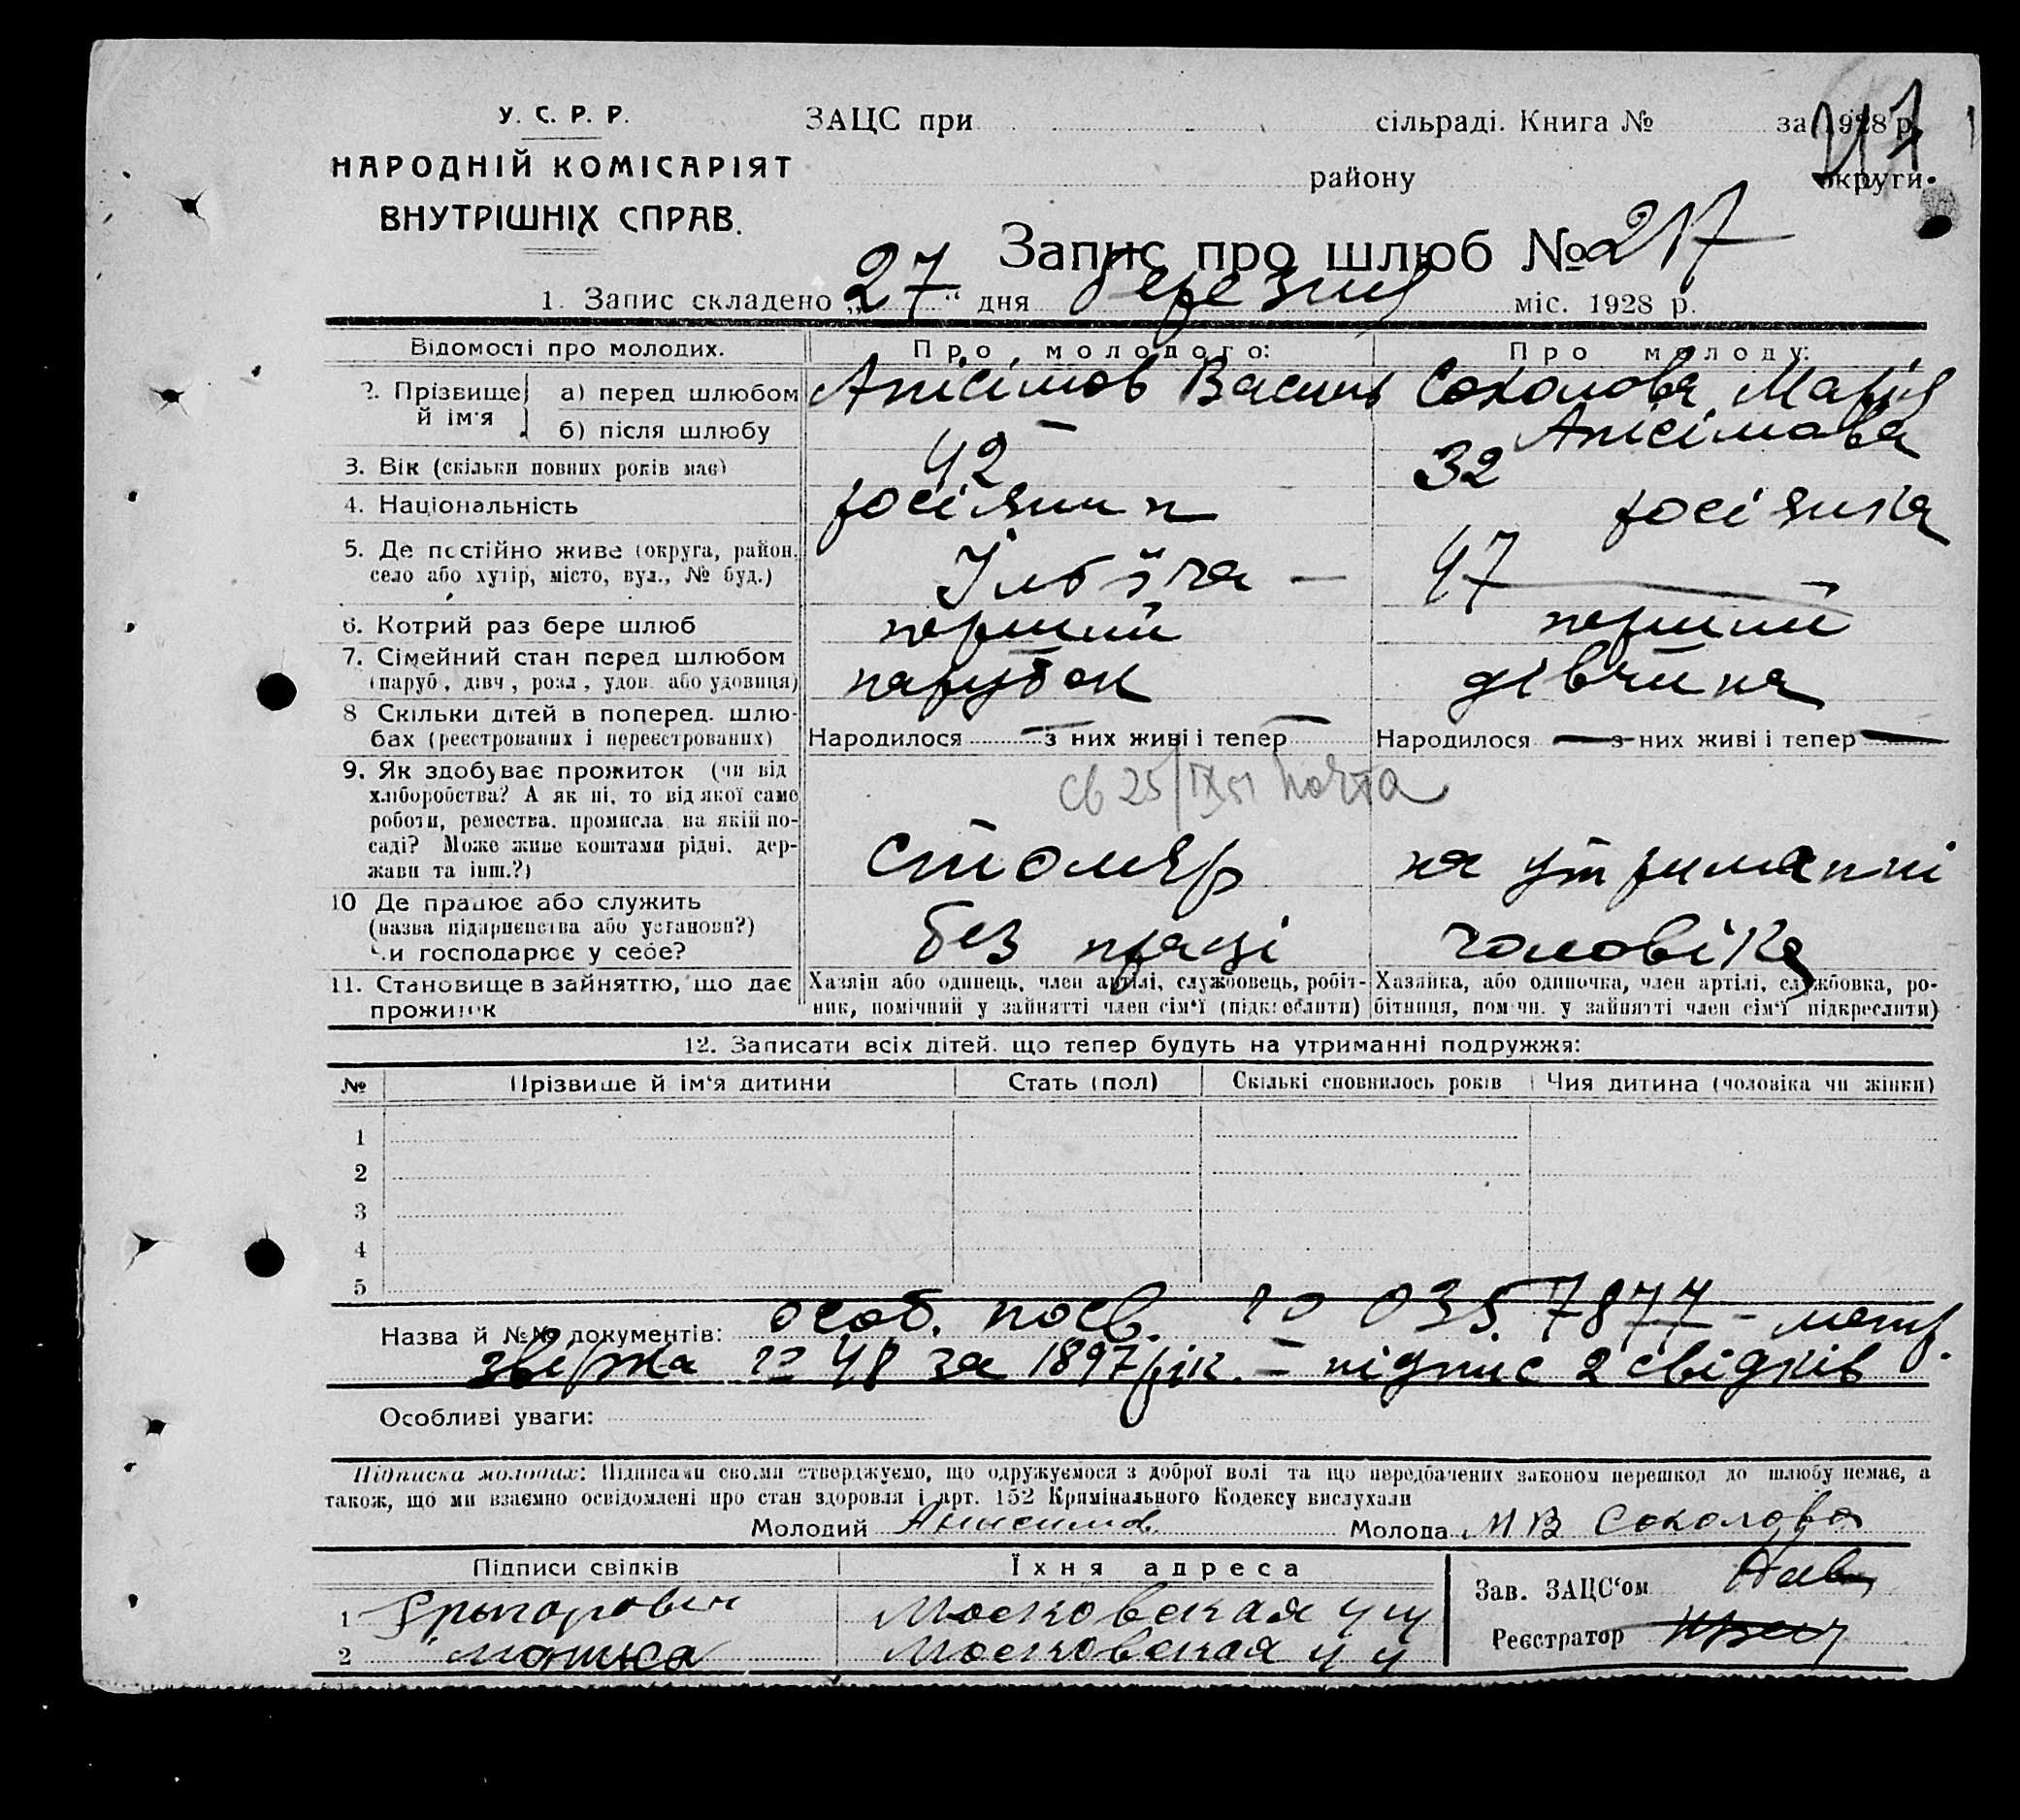 У. С. Р. Р.
НАРОДНІЙ КОМІСАРІЯТ
ВНУТРІШНІХ СПРАВ.
ЗАЦС при сільраді. Книга № за 1928 р.
району округи
217
Запис про шлюб № 217
1. Запис складено „27“ дня березня міс. 1928 р.
Відомості про молодих. Про молодого: Про молоду:
2. Прізвище й ім'я а) перед шлюбом Анісімов Василь Соколова Марія
б) після шлюбу — Анісімова
3. Вік (скільки повних років має) 42 32
4. Національність росіянин росіянка
5. Де постійно живе (округа, район, село або хутір, місто, вул., № буд.) 47
6. Котрий раз бере шлюб перший перший
7. Сімейний стан перед шлюбом (паруб., дівч., розл., удов. або удовиця) парубок дівчина
8 Скільки дітей в поперед. шлюбах (реєстрованих і нереєстрованих) Народилося — з них живі і тепер — Народилося — з них живі і тепер —
св 25/IX 51 почта
9. Як здобуває прожиток (чи від хліборобства? А як ні, то від якої саме роботи, ремества, промисла, на якій посаді? Може живе коштами рідні, держави та інш.?) столяр на утриманні
10 Де працює або служить (назва підприємства або установи?) Чи господарює у себе? без праці чоловіка
11. Становище в зайняттю, що дає прожиток Хазяїн або одинець, член артілі, службовець, робітник, помічний у зайнятті член сім'ї (підкреслити) Хазяйка, або одиночка, член артілі, службовка, робітниця, помічн. у зайнятті член сім'ї підкреслити)
12. Записати всіх дітей, що тепер будуть на утриманні подружжя:
№ Прізвище й ім'я дитини Стать (пол) Скількі сповнилось років Чия дитина (чоловіка чи жінки)
1
2
3
4
5
Назва й №№ документів: особ. посв. № 035. 7877 – метр.
звірка № 48 за 1897 рік. – підпис 2 свідків
Особливі уваги:
Підписка молодих: Підписами своїми стверджуємо, що одружуємося з доброї волі та що передбачених законом перешкод до шлюбу немає, а
також, що ми взаємно освідомлені про стан здоровля і арт. 152 Кримінального Кодексу вислухали
Молодий Анисимов Молода М В Соколова
Підписи свідків Їхня адреса
1 Григорович Московская
2 Московская
Зав. ЗАЦС'ом
Реєстратор